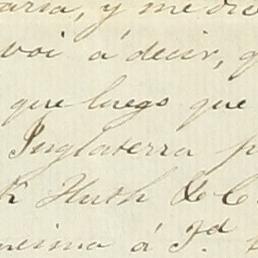 aria, y me dic
voi á decir, q
que luego que
Inglaterra p
k Huth & C
á Jd.